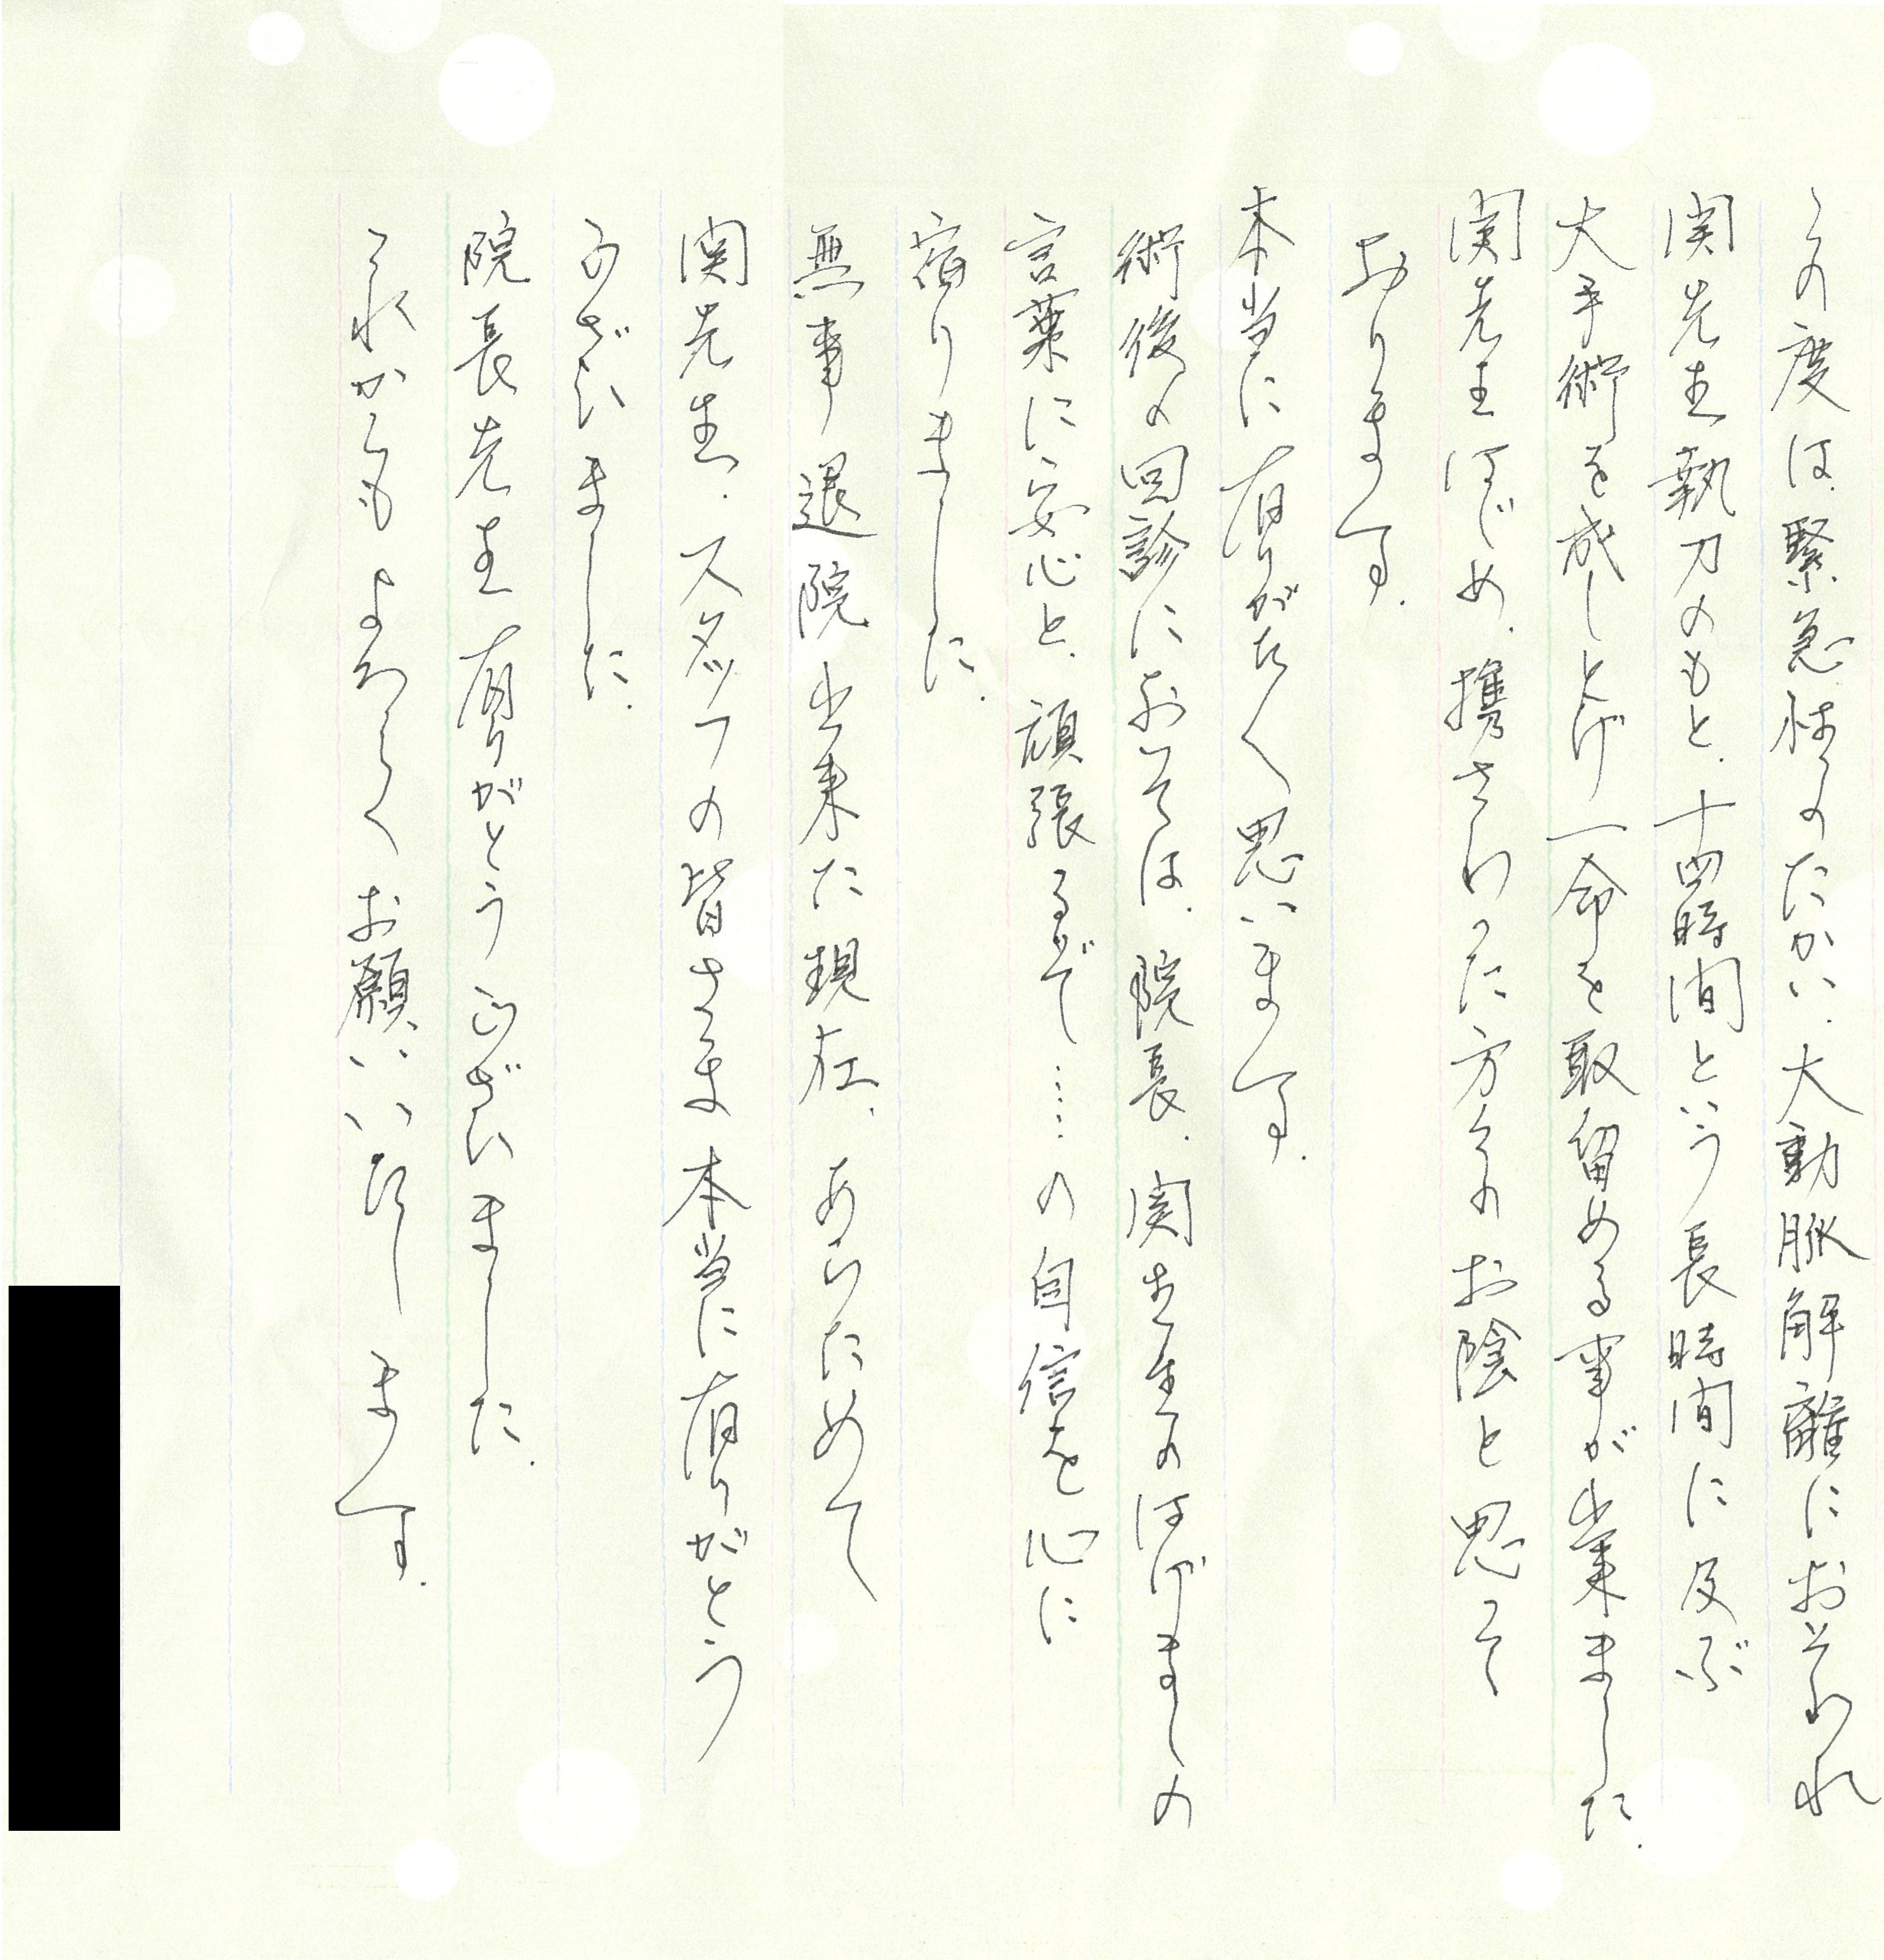 この度は、緊急性のたかい、大動脈解離におそわれ
関先生執刀のもと、十四時間という長時間に及ぶ
大手術を成しとげ一命を取留める事が出来ました。
関先生はじめ、携さわった方々のお陰と思って
おります。
本当に有りがたく思います。
術後の回診においては、院長、関先生のはげましの
言葉に安心と、頑張るぞ……の自信を心に
宿りました。
無事退院出来た現在、あらためて
関先生、スタッフの皆さま本当に有りがとう
ございました。
院長先生有りがとうございました。
これからもよろしくお願いいたします。